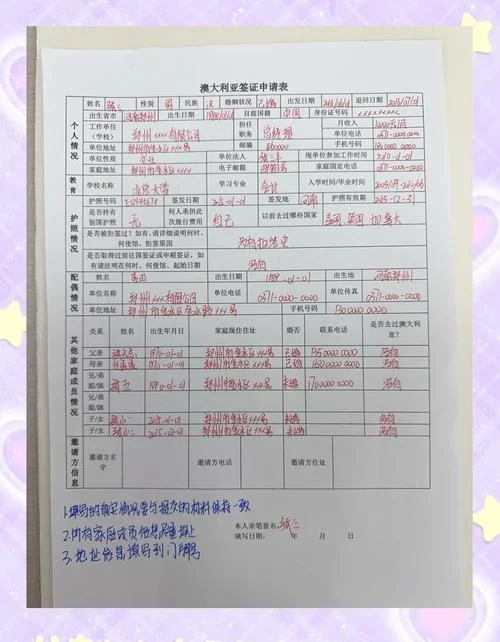 澳大利亚签证申请表
个人情况
姓名 张三 性别 男 民族 汉 婚姻状况 已婚 出发日期 返回日期
出生省市 河南郑州 出生日期 目前国籍 中国 身份证号码
工作单位（学校） 郑州xxxx有限公司 担任职务 月收入
单位电话 0371-0000-0000
单位地址 郑州市金水区xxx号 邮编 手机号码
单位性质 企业 单位法人 张三丰 现单位参加工作时间
家庭地址 郑州市金水区xxx号 电子邮箱 家庭固定电话 0371-0000-0000
教育
学校名称 北京大学 学习专业 会计 入学时间/毕业时间
护照情况
护照号码 签发日 签发地 河南 护照有效期
是否持有别国护照 无 何人承担此次旅行费用 自己 以前去过哪些国家 美国 英国 加拿大
是否被拒签过？如有，请详细说明何时、何使馆、拒签原因
是否取得过前往国签证或申根签证，如有请注明在何时、何使馆、起始日期 没有
配偶情况
姓名 出生日期 出生地 河南郑州
单位名称 郑州xxx有限公司 单位电话 0371-0000-0000 单位传真 0371-0000-0000
单位地址 手机号码 130 0000 0000
其他家庭成员情况
关系 姓名 出生年月日 家庭现住住址 婚否 联系电话 是否去过澳大利亚？
父亲 1970-01-01 郑州市金水区xxx号 已婚 没有
母亲 郑州市金水区xxx号 已婚 没有
兄/弟
姐/妹 郑州市金水区xxx号 已婚 没有
兄/弟
姐/妹
子/女 张小一 郑州市金水区xxx号 未婚 没有
子/女 张小二 郑州市金水区xxx号 未婚 没有
邀请方信息
邀请方名字 邀请方电话 邀请方住址
本人亲笔签名：张三
填写日期： 年 月 日
1.填写的真实情况要与提交的材料保持一致
2.所有家庭成员信息尽量填上
3.地址信息填写到门牌号